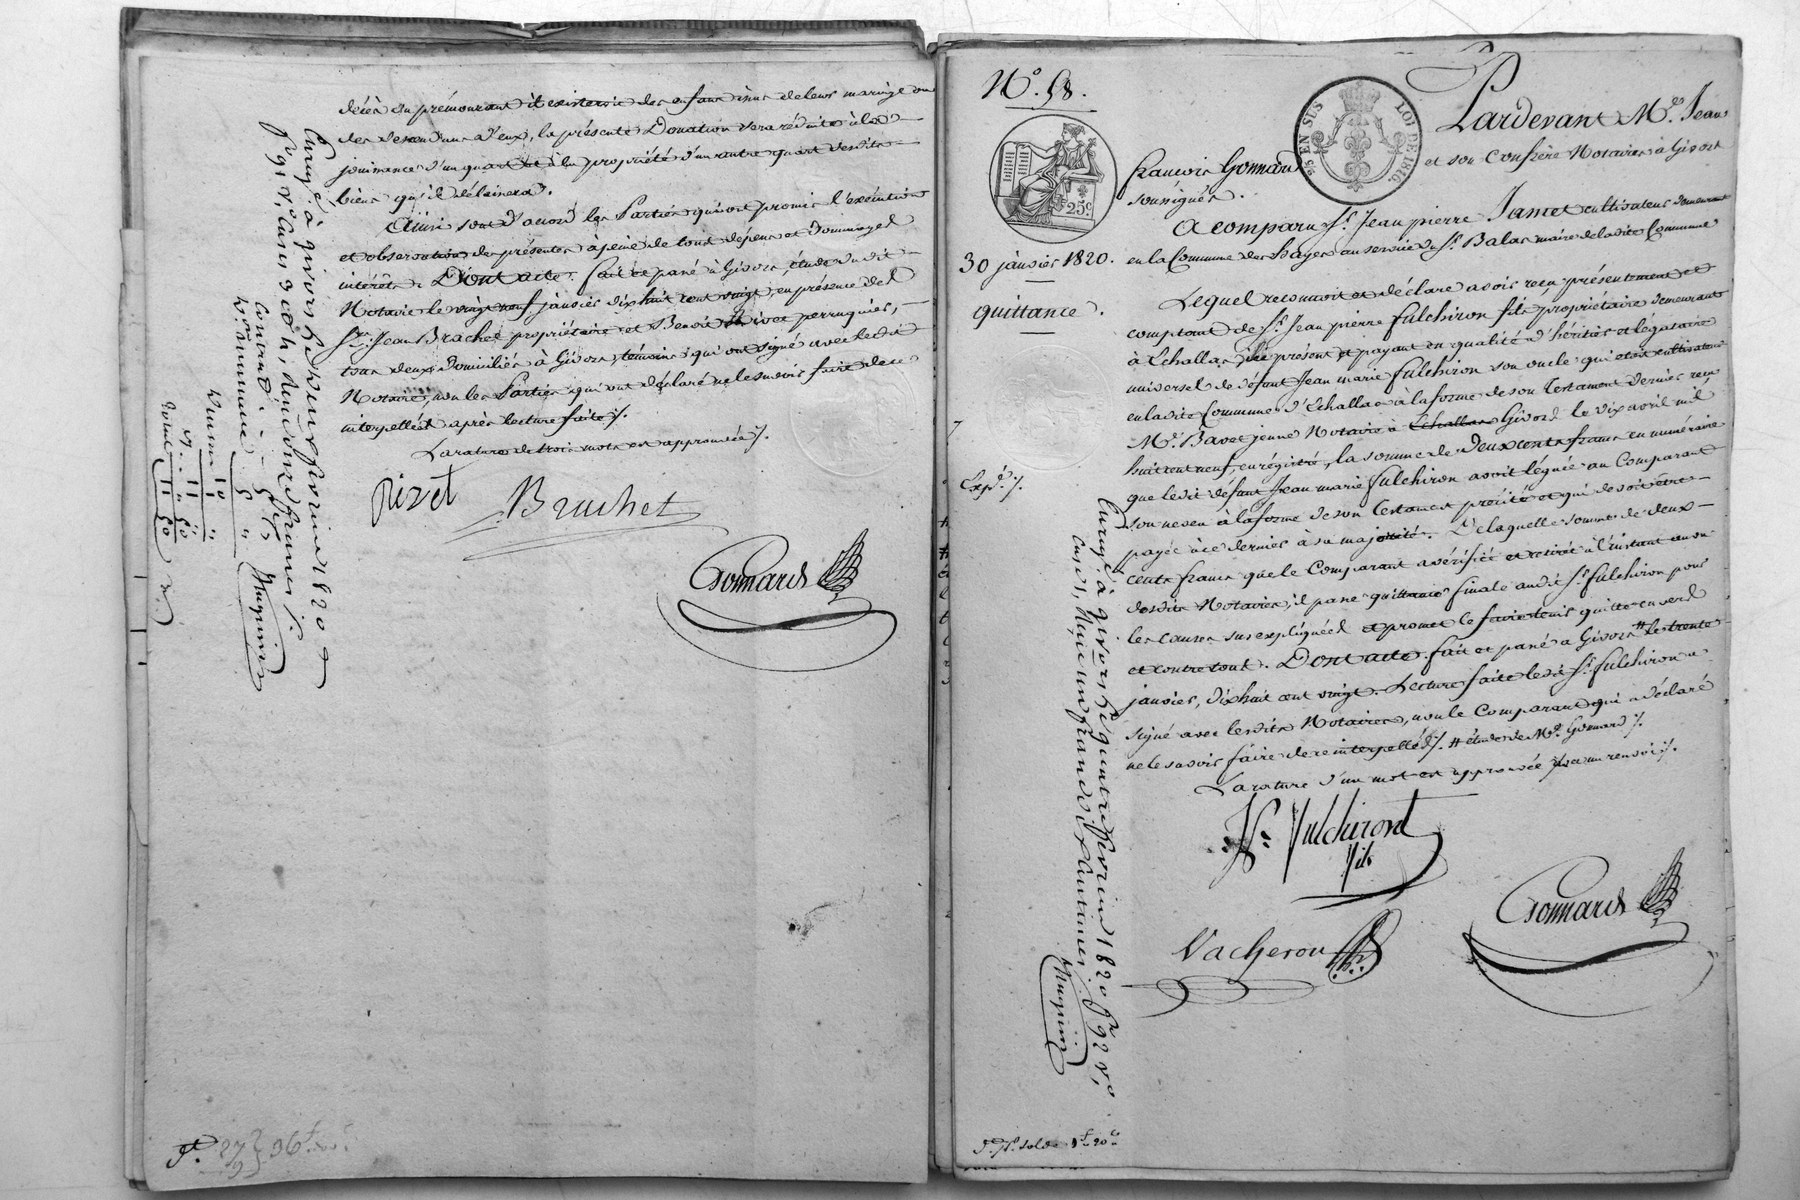 décès du prémourant il existerie des enfans issus de leurs mariage ou
des descendans d'eux, la présente Donation sera réduite à la
jouissance d'un quart et à la propriété d'un autre quart desdits
biens qu'il délaissera.
Ainsi sont d'accord les Parties qui ont promis l'exécution
et observation des présentes à peine de tous dépens et dommages
intérêts. Dont acte. fait et passé à Givors, étude dudit
Notaire le vingt neuf janvier dix huit cent vingt, en présence des
Srs. Jean Brachet propriétaire et Benoit Rivet perruquier,
tous deux domiciliés à Givors, témoins qui ont signé avec ledit
Notaire, non les Parties qui ont déclaré ne le savoir faire de ce
interpellées après lecture faite ./.
La rature de trois mots est approuvée ./.
Rivet Brachet
Gonnard
Enregé. à Givors le neuf février 1820
fo. 91 Vo. Cases 3 et 4, Reçu onze francs
N°. 58.
Pardevant Me. Jean
françois Gonnard et son Confrère Notaires à Givors
soussignés.
25 EN SUS LOI DE 1816.
25c
30 janvier 1820.
quittance.
A comparu Sr. Jean pierre Jamet cultivateur demeurant
en la Commune des hayes au service du Sr. Balas maire de ladite Commune
Lequel reconnoit et déclare avoir reçu présentement et
comptant de Sr. Jean pierre fulchiron fils propriétaire demeurant
à Echallas, ici présent et payant en qualité d'héritier et légataire
universel de défunt Jean marie fulchiron son oncle qui étoit cultivateur
en ladite Commune d'Echallas à la forme de son Testament dernier reçu
Me. Bavet jeune Notaire à Echallas Givors le dix avril mil
huit cent neuf, enregistré, la somme de deux cents francs en numéraire
que ledit défunt Jean marie fulchiron avoit léguée au Comparant
son neveu à la forme de son Testament précité et qui devoit être
payée à ce dernier à sa majorité. De laquelle somme de deux
cents francs que le Comparant a vérifiée et retirée à l'instant au vu
desdits Notaires, il passe quittance finale audit Sr. fulchiron pour
les causes sus expliquées et promet le faire tenir quitte envers
et contre tout. Dont acte. fait et passé à Givors # le trente
janvier, dix huit cent vingt. Lecture faite ledit Sr. fulchiron a
signé avec lesdits Notaires, non le Comparant qui a déclaré
ne le savoir faire de ce interpellé ./. # étude de Me. Gonnard ./.
La rature d'un mot est approuvée ./.
Expé. ./.
Jn. fulchiront
fils
Gonnard
Vacheron
Enregé. à Givors le quatre février 1820 fo. 92 Vo.
Case 1, Reçu un franc dix centimes.